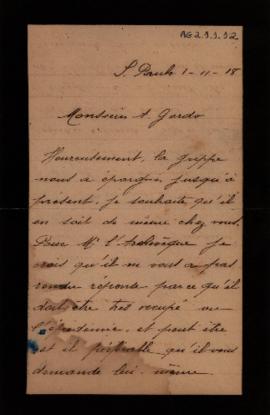 AG2.1.1.92
S. Paulo 1-11-18
Monsieur A. Gordo
Heureusement, la grippe
nous a épargné jusqu'à
présent, je souhaite qu'il
en soit de même chez vous.
Pour Mr l'Archevêque je
crois qu'il ne vous a pas
rendu réponse parce qu'il
doit être très occupé vu
l'épidémie, et peut être
est il préférable qu'il vous
demande lui-même